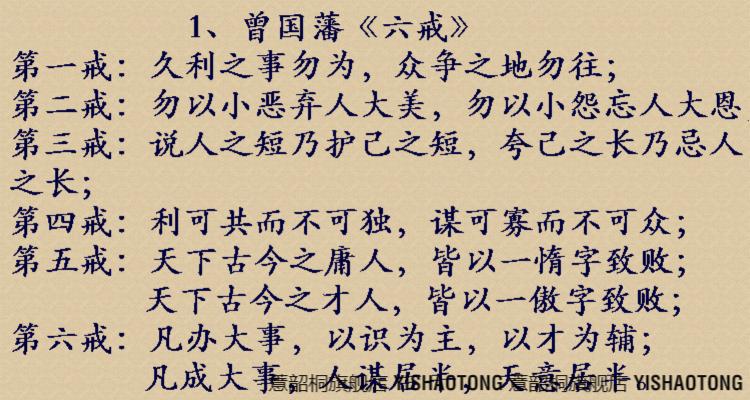 1、曾国藩《六戒》
第一戒：久利之事勿为，众争之地勿往；
第二戒：勿以小恶弃人大美，勿以小怨忘人大恩
第三戒：说人之短乃护己之短，夸己之长乃忌人
之长；
第四戒：利可共而不可独，谋可寡而不可众；
第五戒：天下古今之庸人，皆以一惰字致败；
天下古今之才人，皆以一傲字致败；
第六戒：凡办大事，以识为主，以才为辅；
凡成大事，人谋居半，天意居半。
意韶桐旗舰店 YISHAOTONG 意韶桐旗舰店 YISHAOTONG